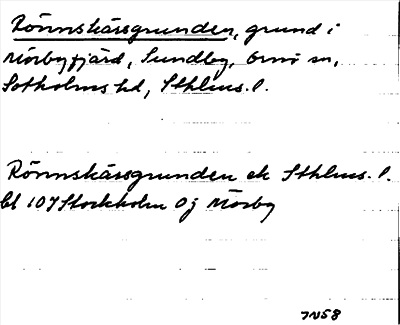 Rönnskärsgrunden, grund i
Mörbyfjärd, Sundby, Ornö sn,
Sotholms hd, Sthlms. l.
Rönnskärsgrunden ek Sthlms. l.
bl 107 Stockholm Oj Mörby
7N58